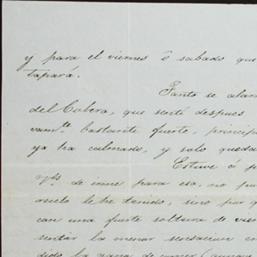 y para el viernes ô sabado que
tapará.
Tanto se alar
del Colera, que sentí despues
vamte bastante fuerte, princip
ya ha calmado, y solo queda
Estuve á p
de irme para esa, no p
miedo le he tenido, sino por q
con una fuerte soltura de vien
sentar la menor sensacion
dido la gana de comer (aunque